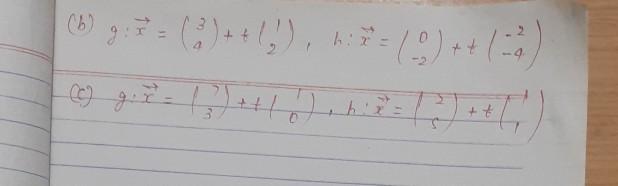 (b) g: x⃗ = (3 4) + t (1 2), h: x⃗ = (0 -2) + t (-2 -4)
(c) g: x⃗ = (7 3) + t (1 0), h: x⃗ = (2 5) + t (1 1)